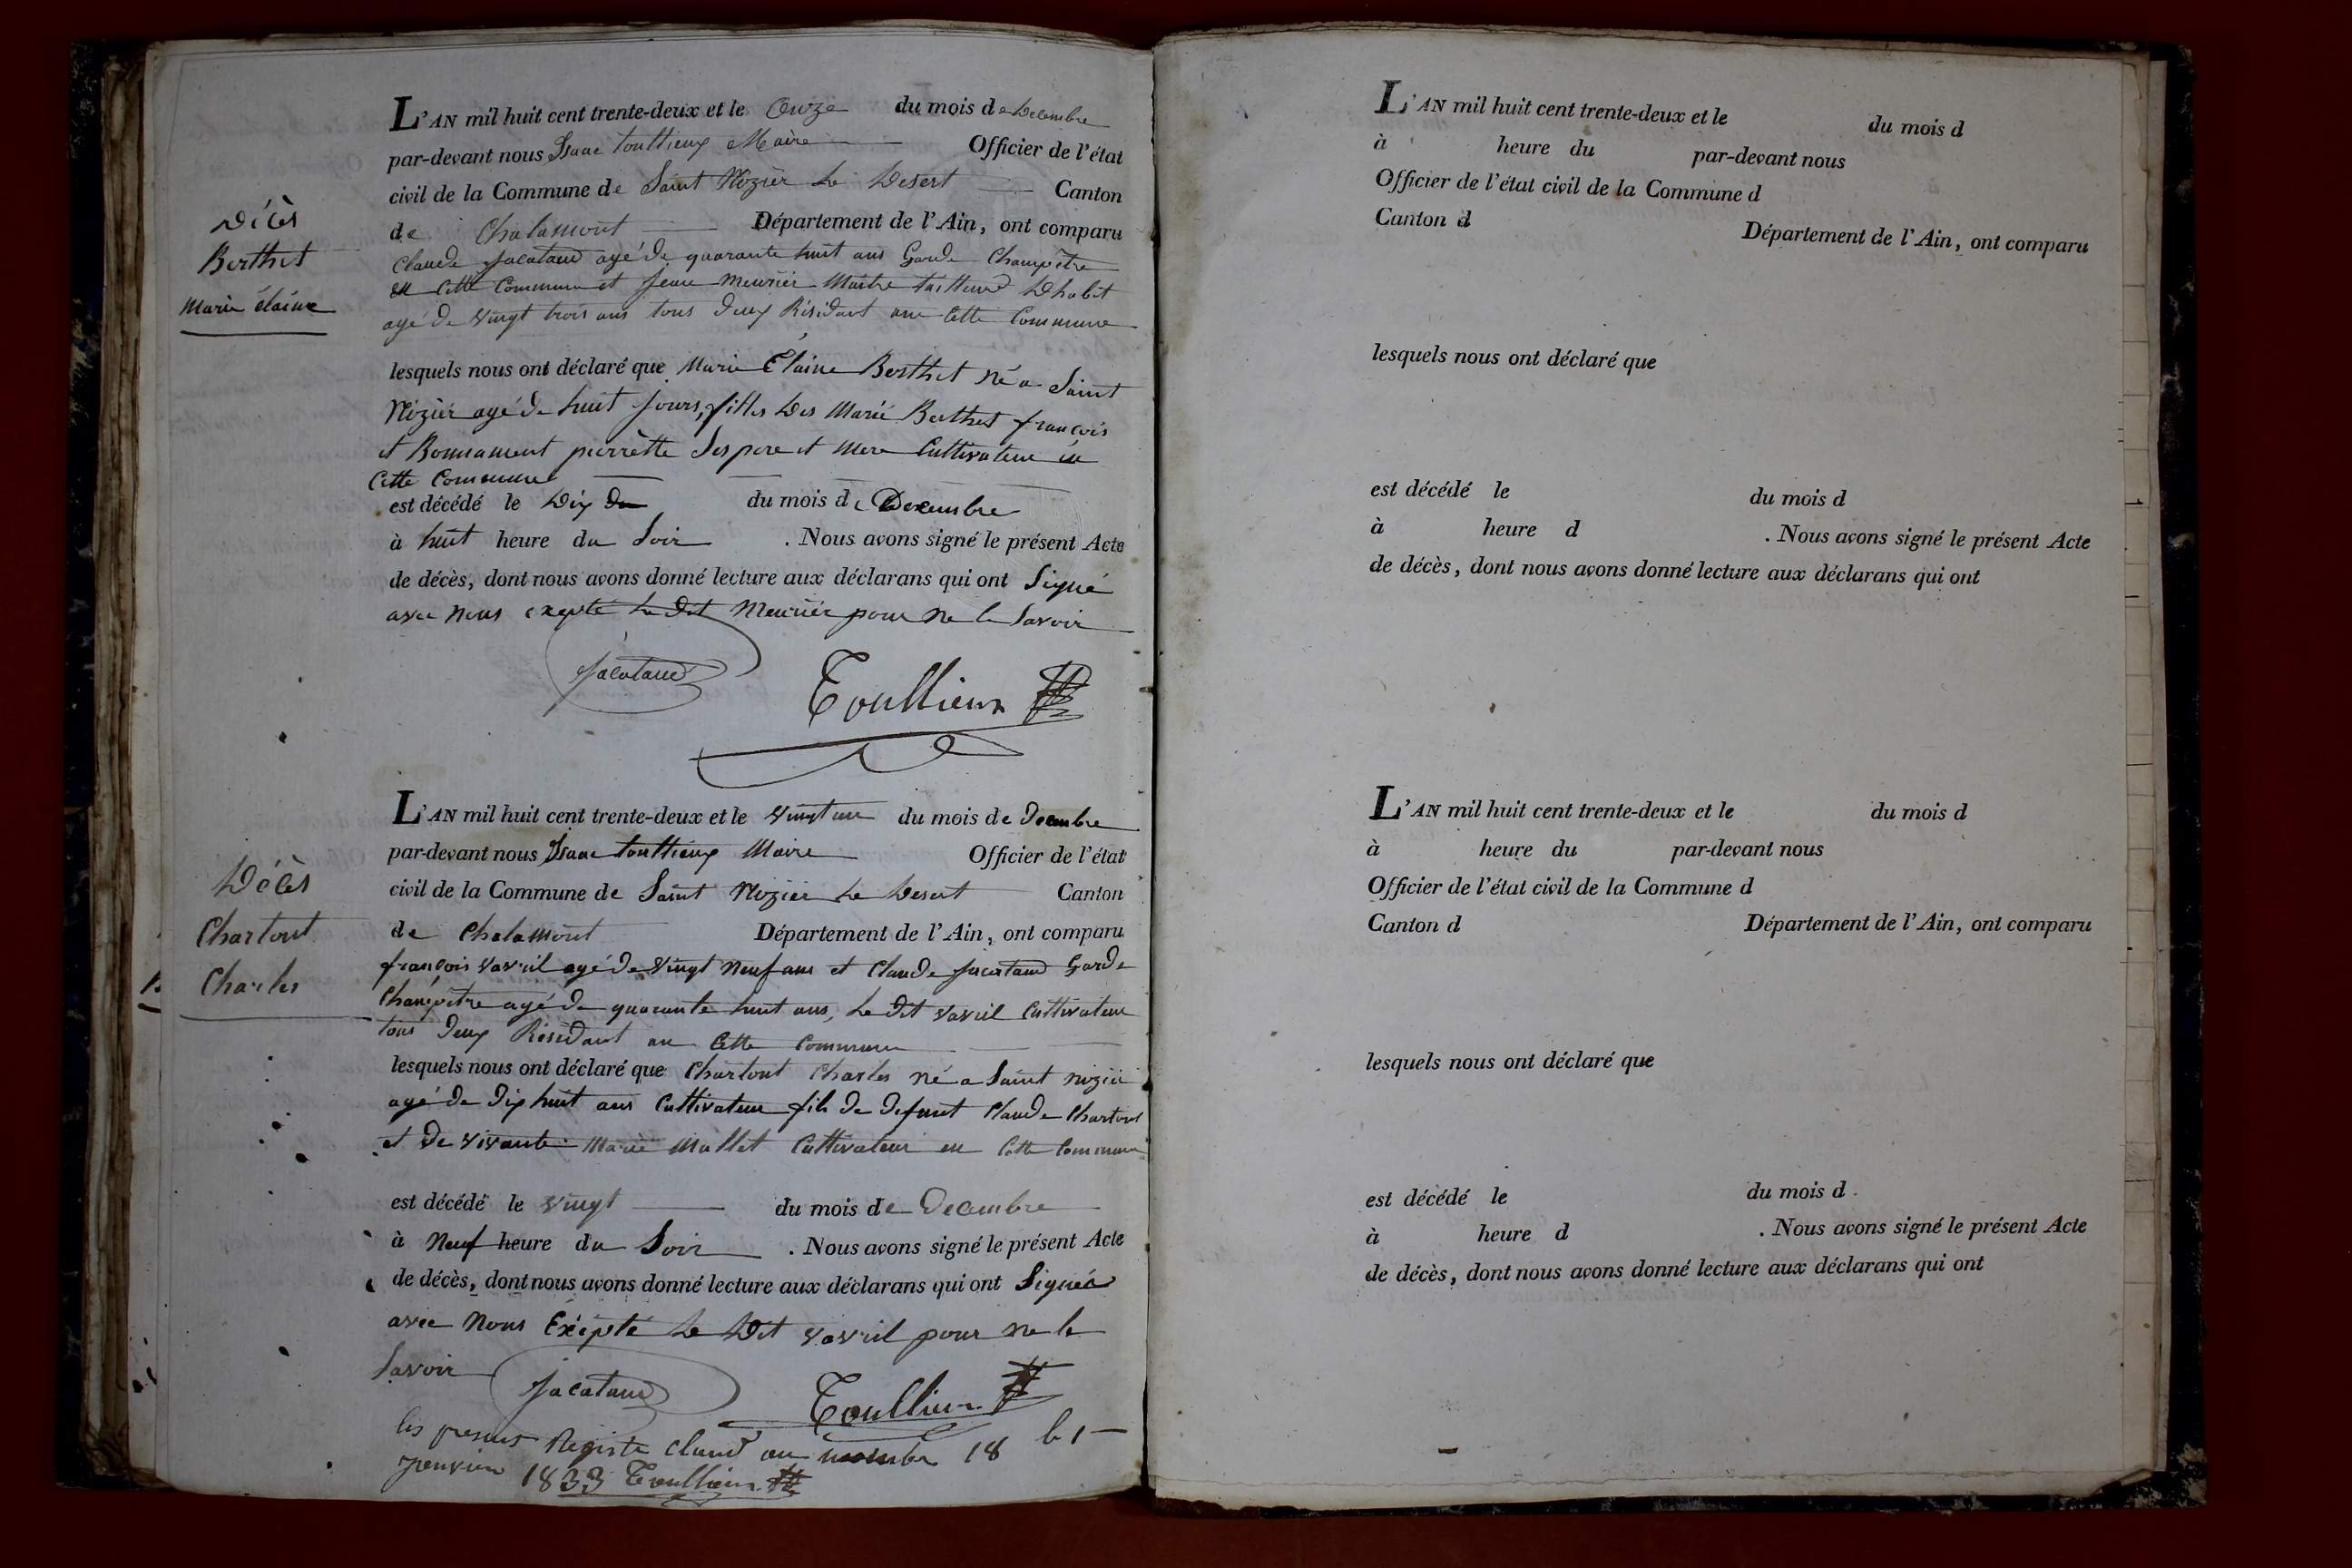 Décès
Berthet
Marie élaine
L'AN mil huit cent trente-deux et le Onze du mois de Decembre
par-devant nous Isaac touttieux Maire Officier de l'état
civil de la Commune de Saint Nizier Le Desert Canton
de Chalamont Département de l'Ain, ont comparu
Claude Jacataud agé de quarante huit ans Garde Champêtre
en Cette Commune et Jean Meunier Maitre tailleur Dhabit
agé de vingt trois ans tous deux Résidant ane Cette Commune
lesquels nous ont déclaré que Marie Élaine Berthet né a Saint
Nizier agé de huit jours, filles Des Marié Berthet françois
et Bonnament pierrette Ses pere et Mere Cultivateur en
Cette Commune
est décédé le Dix du du mois de Decembre
à huit heure du Soir . Nous avons signé le présent Acte
de décès, dont nous avons donné lecture aux déclarans qui ont Signé
avec nous exepté Le Dit Meunier pour ne le Savoir
Jacataud Toullieux
Décès
Chartout
Charles
L'AN mil huit cent trente-deux et le vingt un du mois de Decembre
par-devant nous Isaac touttieux Maire Officier de l'état
civil de la Commune de Saint Nizier Le Desert Canton
de Chalamont Département de l'Ain, ont comparu
françois vavril agé de vingt neuf ans et Claude Jacataud Garde
Champêtre agé de quarante huit ans, Le Dit vavril Cultivateur
tous deux Résidant an Cette Commune
lesquels nous ont déclaré que Chartout Charles né a Saint nizier
agé de dix huit ans Cultivateur fils de defunt Claude Chartout
et de vivante Marie Mallet Cultivateur en Cette Commune
est décédé le vingt du mois de Decembre
à Neuf heure du Soir . Nous avons signé le présent Acte
de décès, dont nous avons donné lecture aux déclarans qui ont Signée
avec Nous Éxépté Le Dit vavril pour ne le
Savoir Jacataud Toullieux
les presens Registe claud au nombre 18 le 1
Janvier 1833 Toullieux
L'AN mil huit cent trente-deux et le du mois d
à heure du par-devant nous
Officier de l'état civil de la Commune d
Canton d Département de l'Ain, ont comparu
lesquels nous ont déclaré que
est décédé le du mois d
à heure d . Nous avons signé le présent Acte
de décès, dont nous avons donné lecture aux déclarans qui ont
L'AN mil huit cent trente-deux et le du mois d
à heure du par-devant nous
Officier de l'état civil de la Commune d
Canton d Département de l'Ain, ont comparu
lesquels nous ont déclaré que
est décédé le du mois d
à heure d . Nous avons signé le présent Acte
de décès, dont nous avons donné lecture aux déclarans qui ont